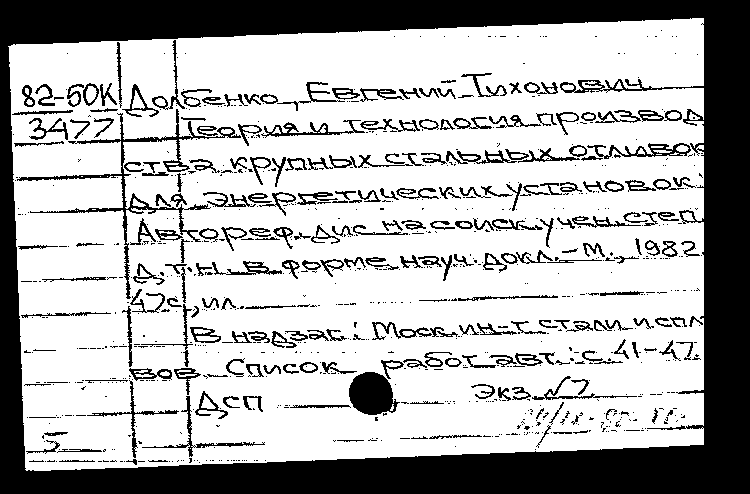 82-50К Долбенко, Евгений Тихонович
3477 Теория и технология производ
ства крупных стальных отливок
для энергетических установок:
Автореф. дис. на соиск. учен. степ.
д.т.н. в форме науч. докл. -М., 1982.
47с., ил.
В надзаг.: Моск. ин-т стали и спла
вов. Список работ авт.: с. 41-47.
ДСП Экз. №7
5